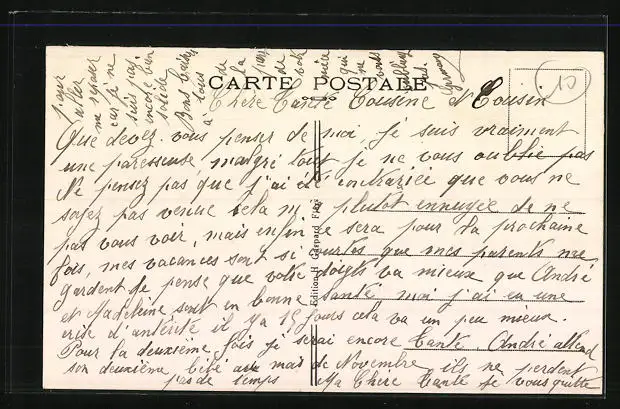 CARTE POSTALE
10
Chère Tante Cousine et Cousin
Que devez-vous penser de moi, je suis vraiment
une paresseuse, malgré tout je ne vous oublie pas
Ne pensez pas que j'ai été contrariée que vous ne
soyez pas venue cela m'a plutot ennuyée de ne
pas vous voir, mais enfin ce sera pour la prochaine
fois, mes vacances sont si courtes que mes parents me
gardent je pense que votre doigts va mieux que André
et Madeleine sont en bonne santé moi j'ai eu une
crise d'antérite il y a 15 jours cela va un peu mieux.
Pour la deuxième fois je serai encore tante. André attend
son deuxième bébé au mois de Novembre ils ne perdent
pas de temps Ma Chère tante je vous quitte
pour
aller
me reposer
car je ne
suis pas
encore bien
solide
Bons baisers
à tous de
la part
de votre
nièce
qui
ne
vous
oublie
pas.
Edition H. Gaspard Frès